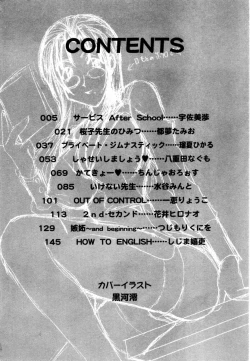 CONTENTS
005 サービス After School……宇佐美渉
021 桜子先生のひみつ……都夢たみお
037 プライベート・ジムナスティック……瑠夏ひかる
053 しゃせいしましょう♥……八重田なぐも
069 かてきょー♥……ちんじゃおろぉす
085 いけない先生……水谷みんと
101 OUT OF CONTROL……一恵りょうこ
113 2nd・セカンド……花井ヒロナオ
129 嫉姉〜and beginning〜……つじもりくにを
145 HOW TO ENGLISH……しじま嬉更
カバーイラスト
黒河澪